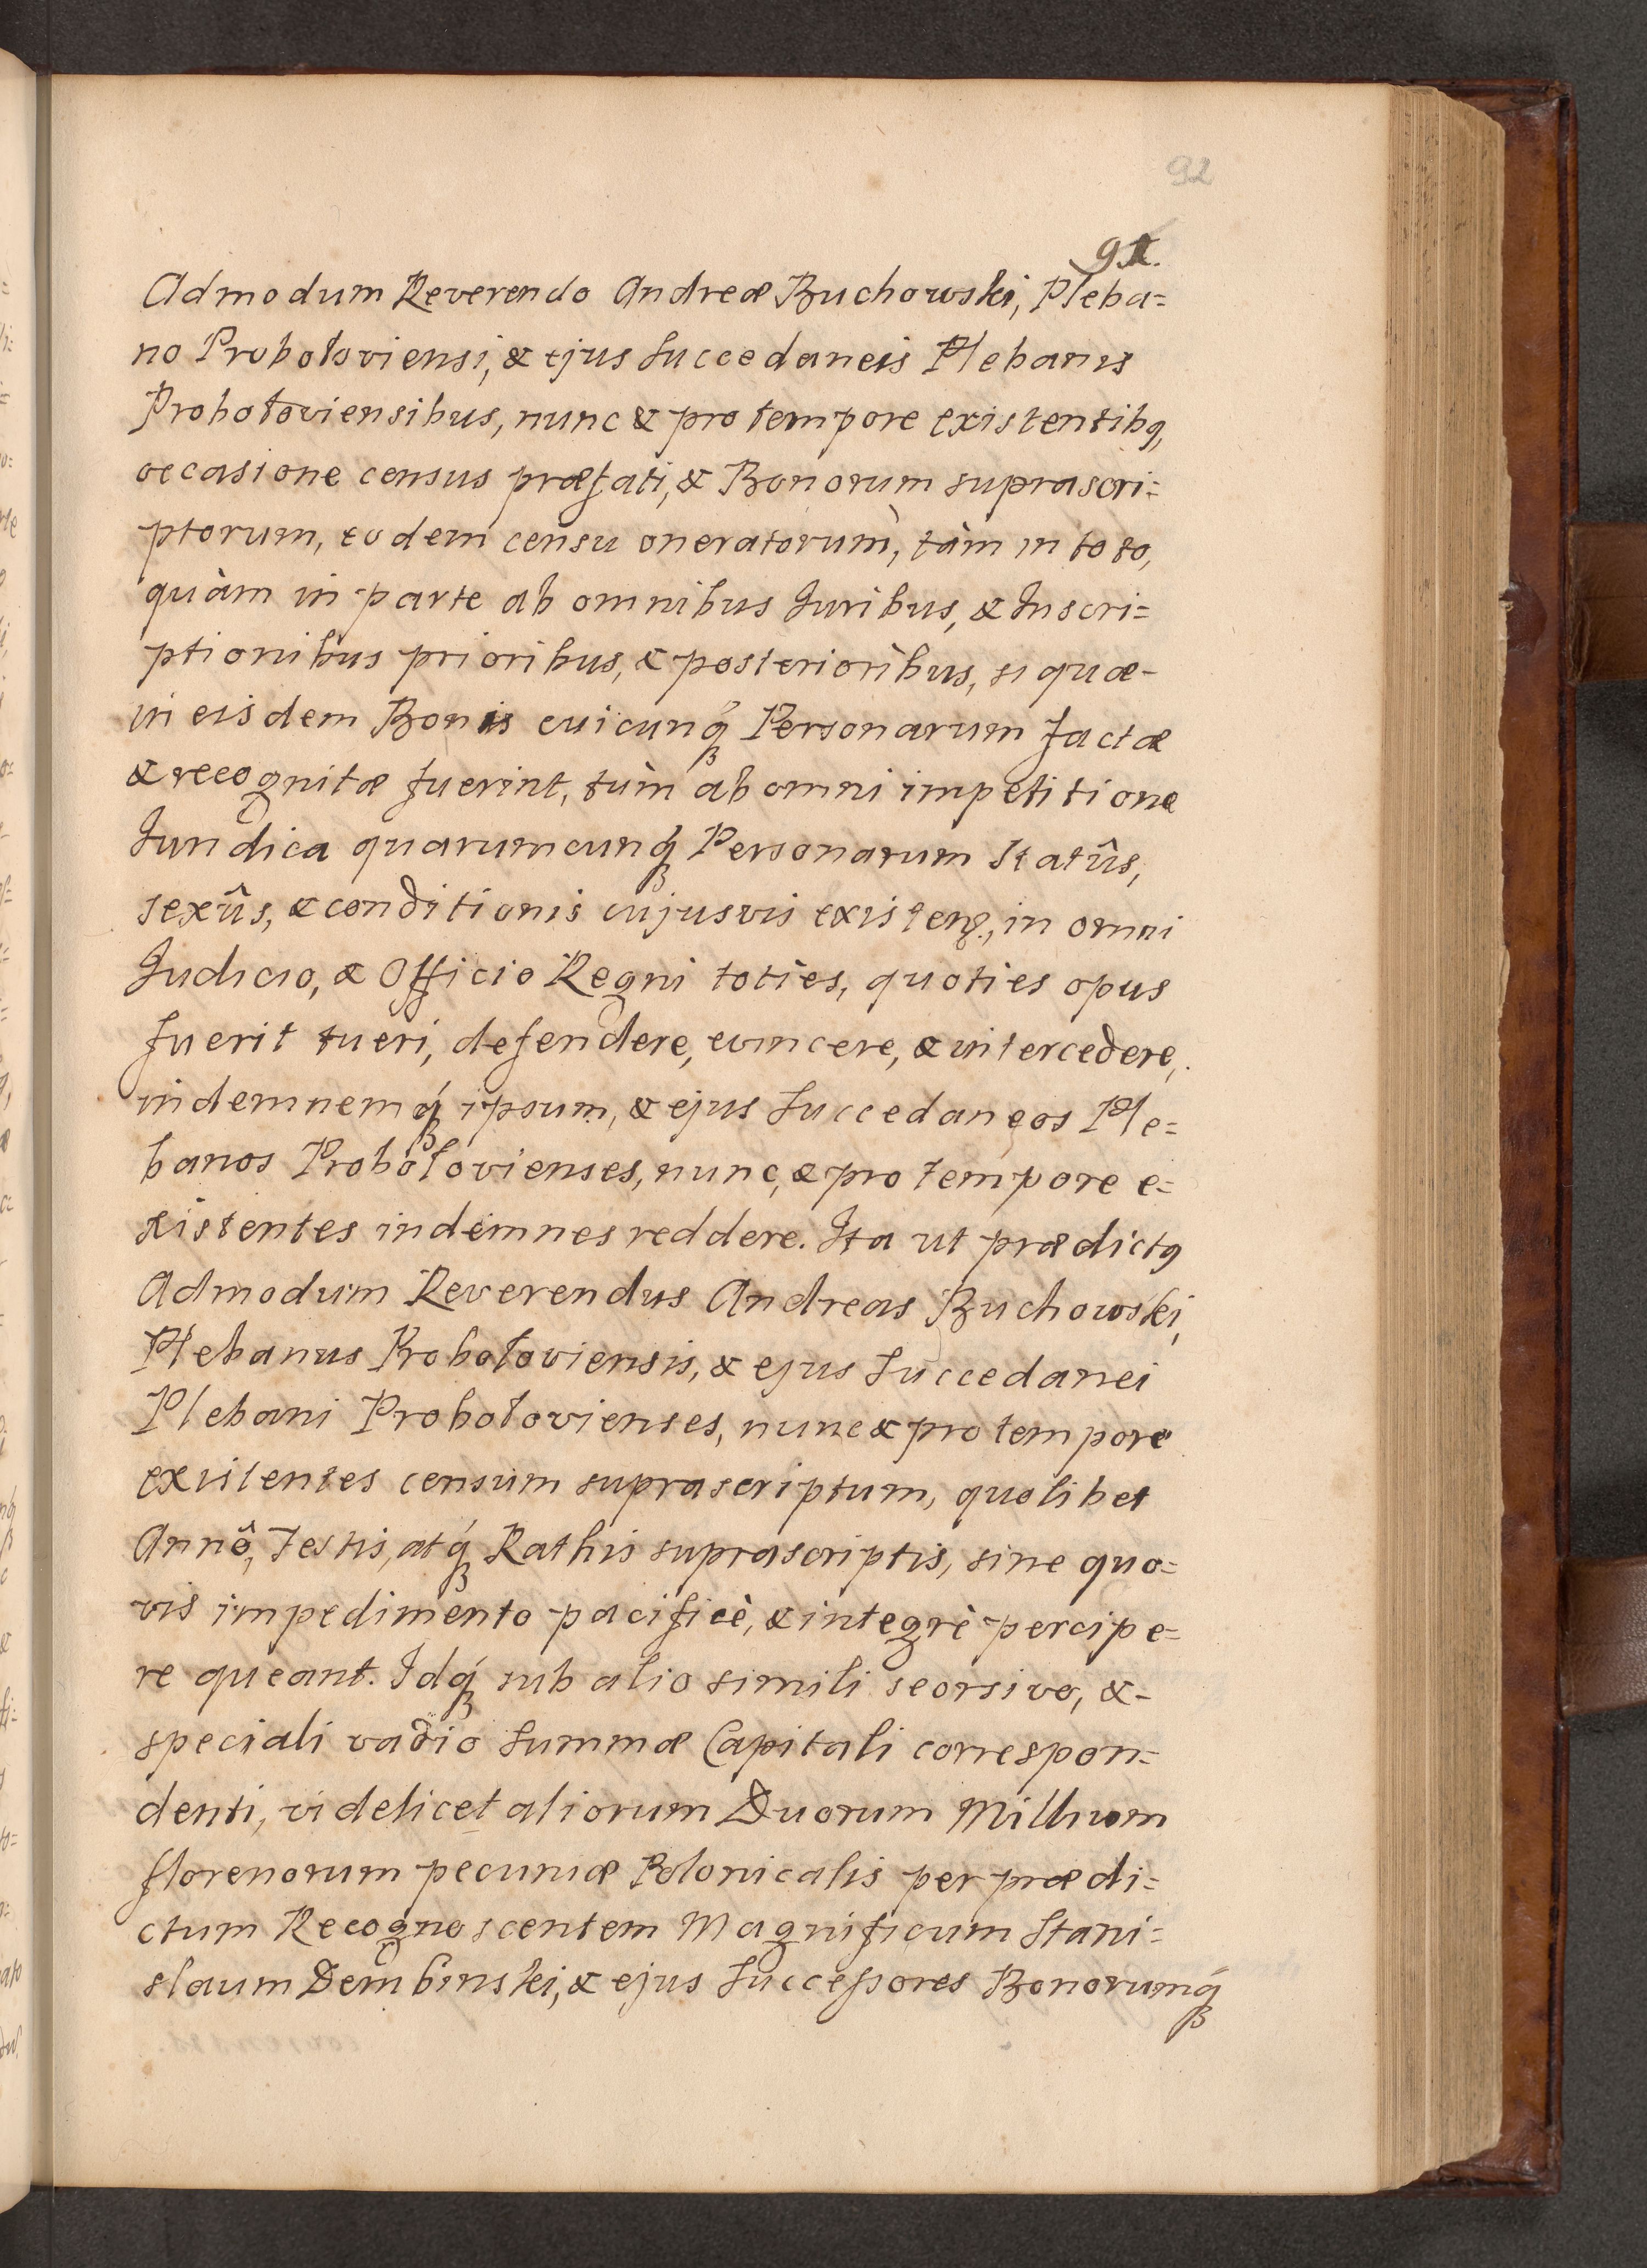 92
91.
Admodum Reverendo Andreæ Buchowski, Pleba=
no Probołoviensi, & ejus Succedaneis Plebanis
Probołoviensibus, nunc & pro tempore existentibq,
occasione census præfati, & Bonorum suprascri=
ptorum, eodem censu oneratorum, tàm in toto,
quàm in parte ab omnibus Juribus, & Inscri=
ptionibus prioribus, & posterioribus, si quæ-
in eisdem Bonis cuicunq́ Personarum factæ
& recognitæ fuerint, tùm ab omni impetitione
Juridica quarumcunq́ Personarum Statûs,
sexûs, & conditionis cujusvis existen., in omni
Judicio, & Officio Regni toties, quoties opus
fuerit tueri, defendere, evincere, & intercedere,
indemnemq́ ipsum, & ejus Succedaneos Ple=
banos Probołovienses, nunc, & pro tempore e=
xistentes indemnes reddere. Ita ut prædictq
Admodum Reverendus Andreas Buchowski,
Plebanus Probołoviensis, & ejus Succedanei
Plebani Probołovienses, nunc & pro tempore
existentes censum suprascriptum, quolibet
Annô, Festis, atq́ Rathis suprascriptis, sine quo=
vis impedimento pacificè, & integrè percipe=
re queant. Idq́ sub alio simili seorsivo, &-
speciali vadio Summæ Capitali correspon=
denti, videlicet aliorum Duorum Millium
florenorum pecuniæ Polonicalis per prædi=
ctum Recognoscentem Magnificum Stani=
slaum Dembinski, & ejus Successores Bonorumq́